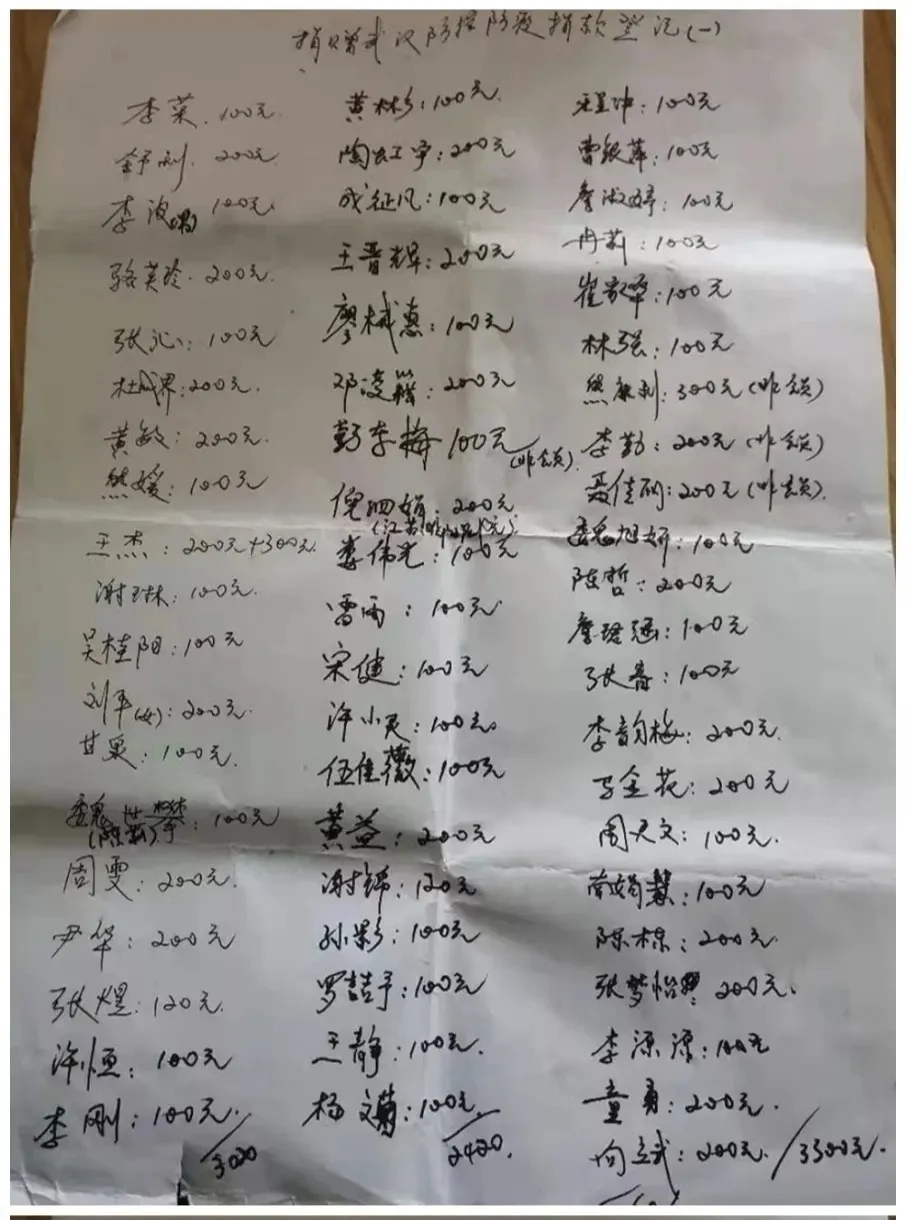 捐赠武汉防控防疫捐款登记(一)
李菜.100元.
舒利.200元.
李波 100元.
骆英玲.200元.
张沁:100元
杜成界:200元.
黄敏:200元.
熊媛:100元
王杰:200元+300元.
谢琳:100元.
吴桂阳:100元
刘平(女):200元.
甘果:100元.
魏世攀:100元
周雯:200元.
尹华:200元
张煜:120元.
许恒:100元
李刚:100元.
/3020
黄林杉:100元.
陶虹宇:200元
成征风:100元
王晋辉:200元
廖械惠:100元
邓凌巍:200元
鄞冬梅100元
倪泗娟:200元
娄伟光:100元
雷雨:100元
宋健:100元
许小灵:100元
伍佳薇:100元
黄益:200元
谢锦:120元
孙影:100元
罗喆予:100元
王静:100元.
杨文菊:100元.
/2420.
汪星坤:100元
曹银萍:100元
詹淑婷:100元
冉莉:100元
崔家华:100元
林强:100元
熊康利:300元(昨交颜)
李勤:200元(昨交颜)
聂佳:200元(昨交颜).
魏旭妍:100元
陈哲:200元
詹璐涵:100元
张春:100元
李韵梅:200元.
金花:200元
周天文:100元.
常娟慧:100元
陈栋:200元.
张梦怡:200元.
李源源:100元
童勇:200元.
向武:200元./3300元.